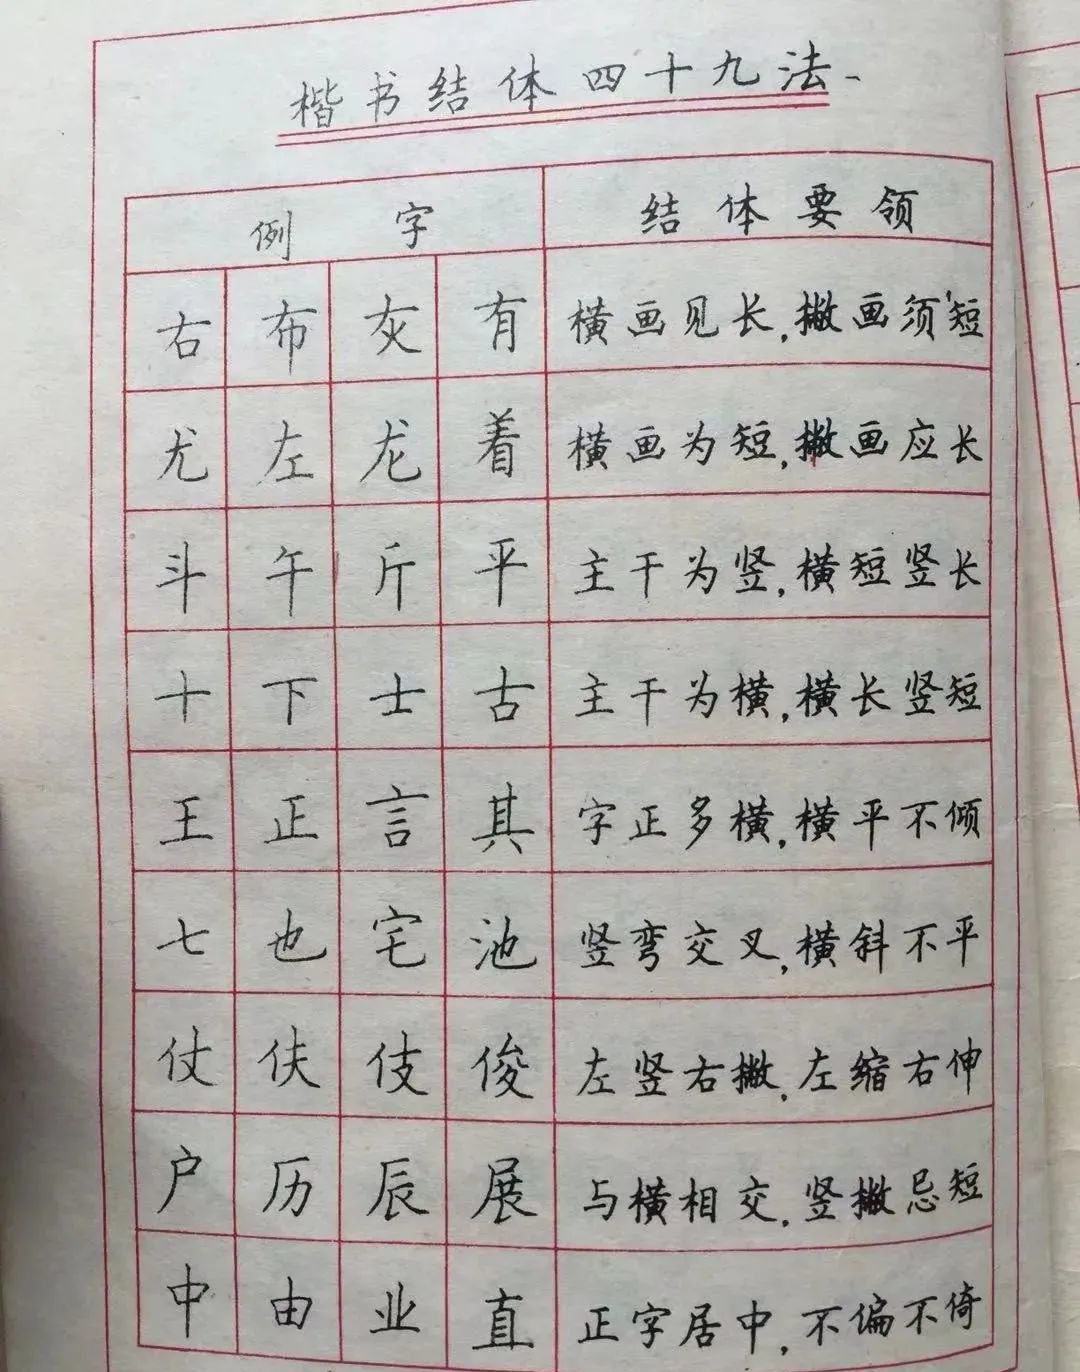 楷书结体四十九法、
例字 结体要领
右 布 灰 有 横画见长,撇画须短
尤 左 龙 着 横画为短,撇画应长
斗 午 斤 平 主干为竖,横短竖长
十 下 士 古 主干为横,横长竖短
王 正 言 其 字正多横,横平不倾
七 也 宅 池 竖弯交叉,横斜不平
仗 伕 伎 俊 左竖右撇,左缩右伸
户 历 辰 展 与横相交,竖撇忌短
中 由 业 直 正字居中,不偏不倚